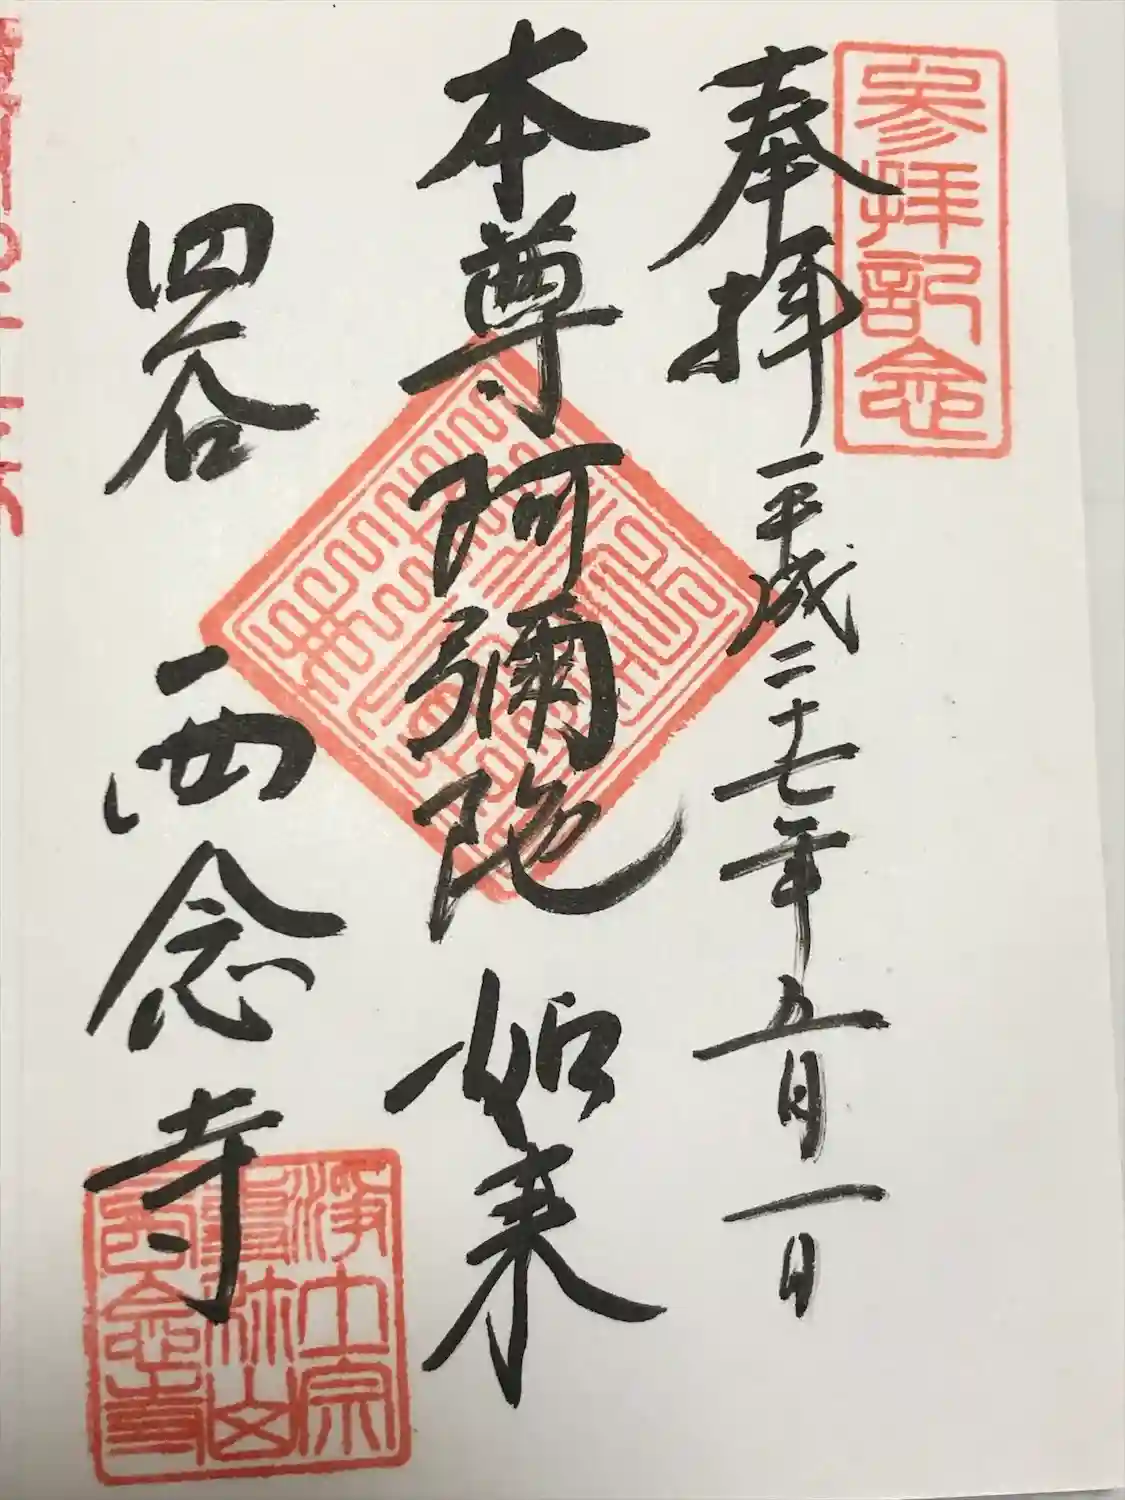 参拝記念
奉拝 平成二十七年五月一日
本尊阿彌陀如来
四谷 西念寺
浄土宗
専称山
西念寺